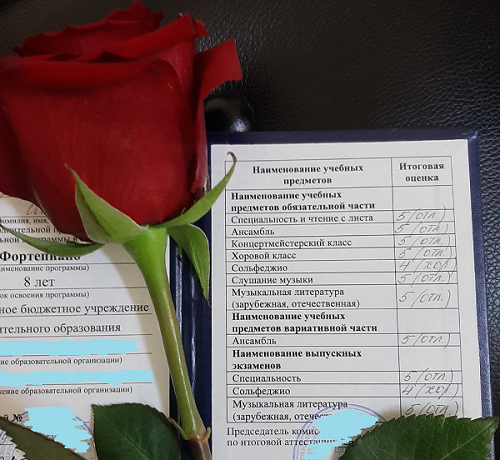 фамилия, имя,
Фортепиано
наименование программы)
8 лет
ок освоения программы)
ное бюджетное учреждение
ительного образования
ние образовательной организации)
жение образовательной организации)
№
Наименование учебных Итоговая
предметов оценка
Наименование учебных
предметов обязательной части
Специальность и чтение с листа 5 (отл.)
Ансамбль 5 (отл.)
Концертмейстерский класс 5 (отл.)
Хоровой класс 5 (отл.)
Сольфеджио 4 (хор.)
Слушание музыки 5 (отл.)
Музыкальная литература
(зарубежная, отечественная) 5 (отл.)
Наименование учебных
предметов вариативной части
Ансамбль 5 (отл.)
Наименование выпускных
экзаменов
Специальность 5 (отл.)
Сольфеджио 4 (хор.)
Музыкальная литература
(зарубежная, отечес 5 (отл.)
Председатель комис
по итоговой аттеста